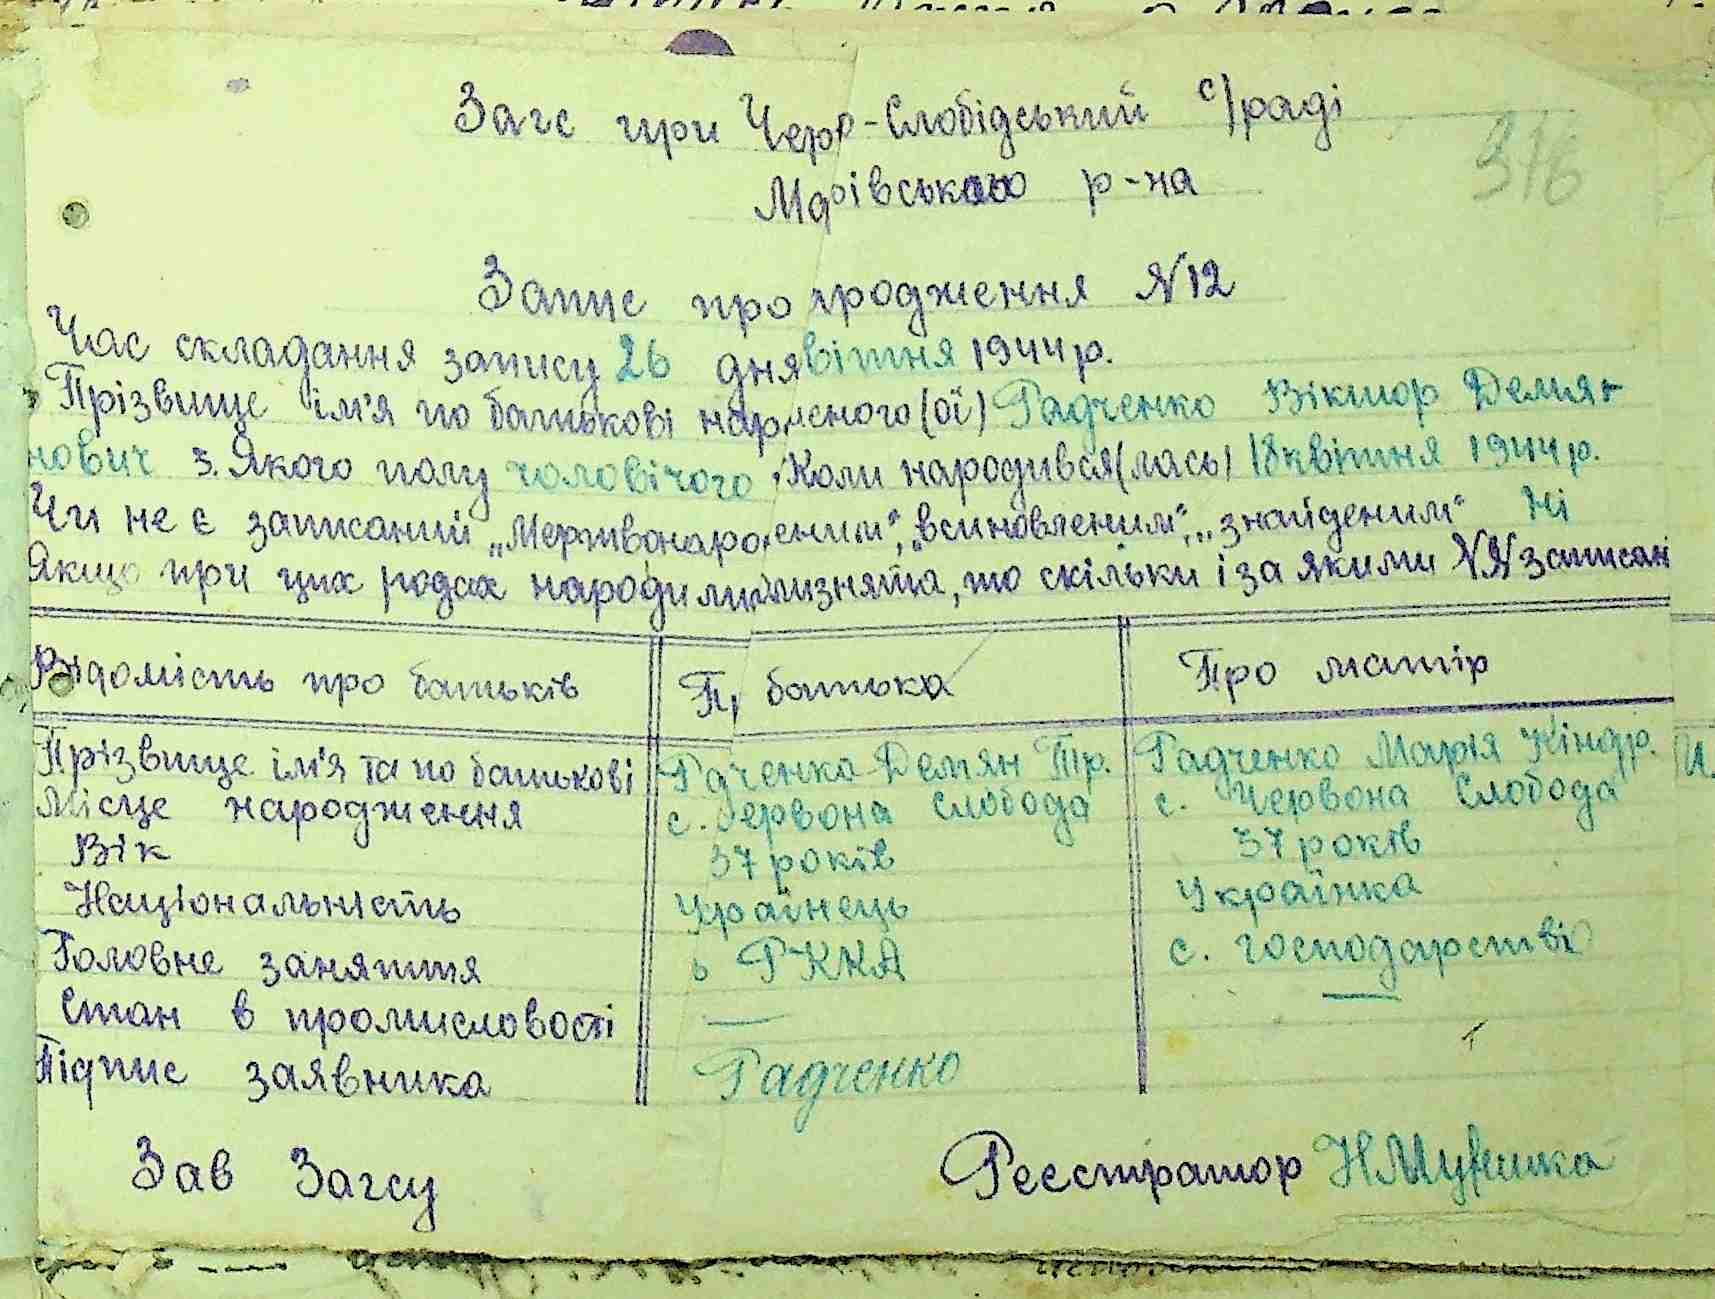 Загс при Черв-Слобідський с/раді
376
р-на
Запис про народження N12
Час складання запису 26 дня квітня 1944 р.
Прізвище ім'я по батькові народженого(ої) Радченко Віктор Демня-
нович 3. Якого полу чоловічого. Коли народився(лась) 18 квітня 1944 р.
Чи не є записаний „Мертвонародженим", „всиновленим", „знайденим" Ні
Якщо при цих родах народились близнята, то скільки і за якими NN записані
Відомість про батьків Про батька Про матір
Прізвище ім'я та по батькові Радченко Демян Тр. Радченко Марія Кіндр.
Місце народження с. Червона Слобода с. Червона Слобода
Вік 37 років 37 років
Національність Українець Українка
Головне заняття в РККА с. господарстві
Стан в промисловості — —
Підпис заявника Радченко
Зав Загсу Реєстратор